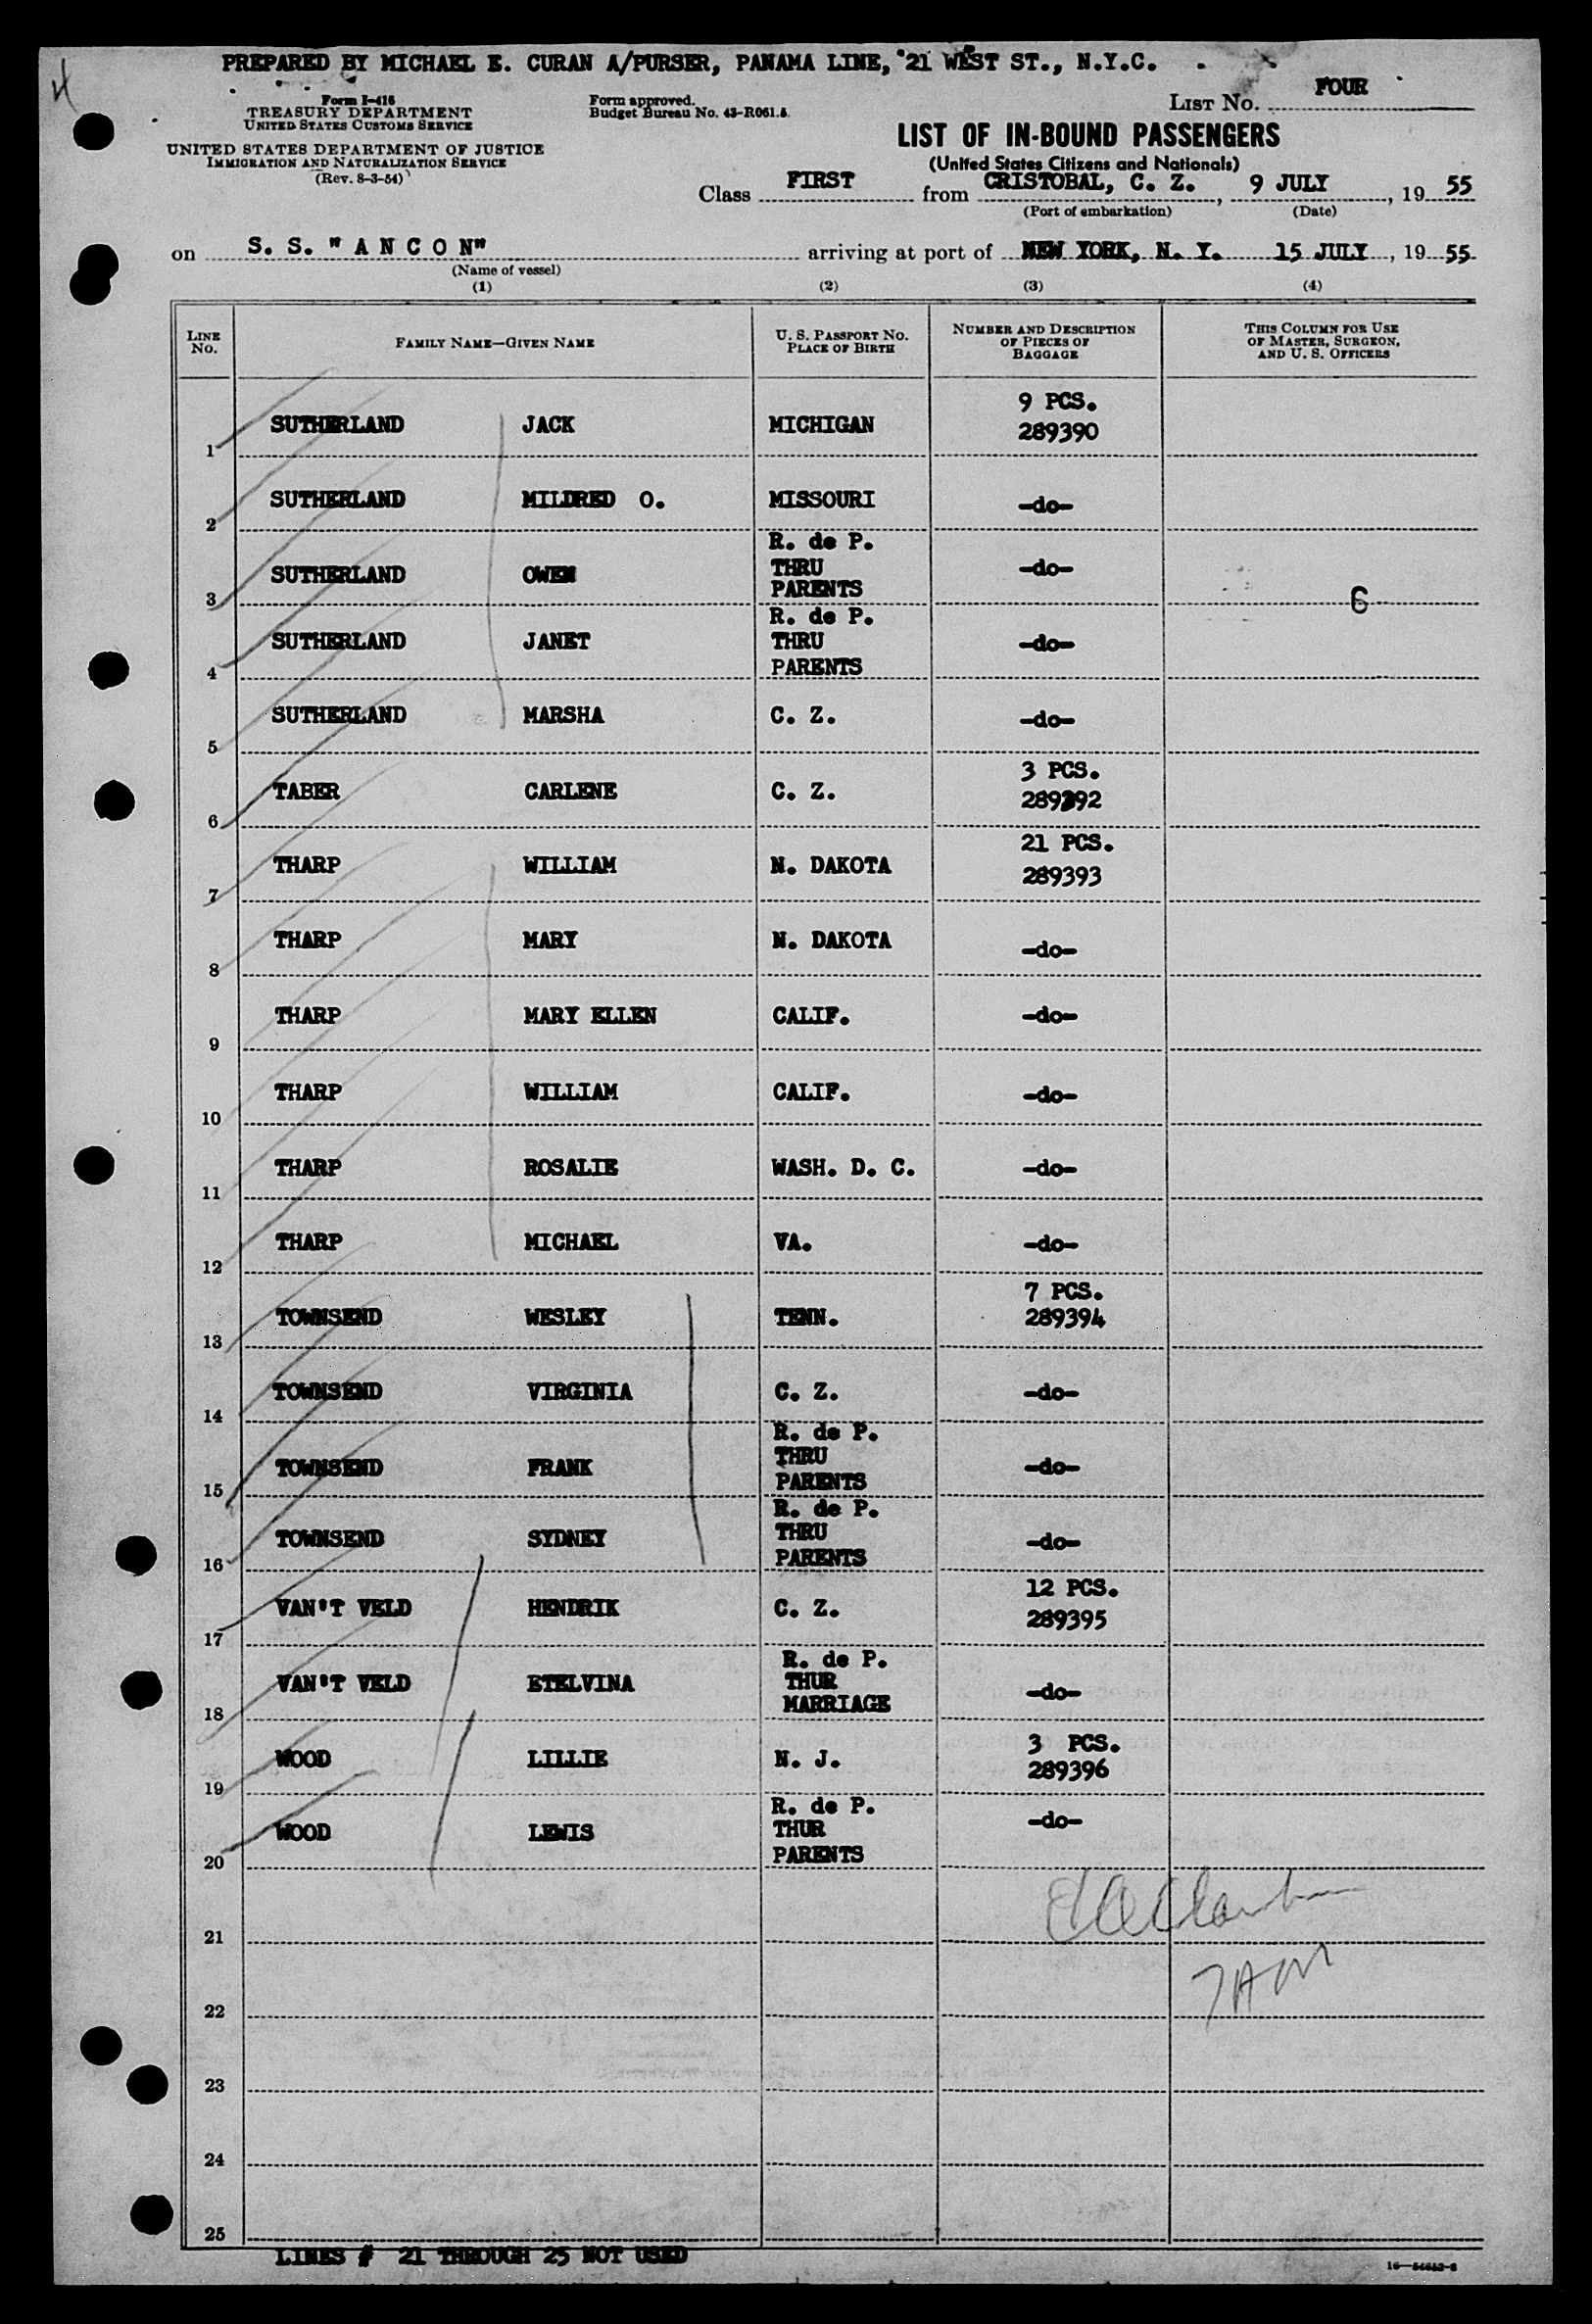 4
PREPARED BY MICHAEL E. CURAN A/PURSER, PANAMA LINE, 21 WEST ST., N.Y.C.
Form I-416
TREASURY DEPARTMENT
UNITED STATES CUSTOMS SERVICE
UNITED STATES DEPARTMENT OF JUSTICE
IMMIGRATION AND NATURALIZATION SERVICE
(Rev. 8-3-54)
Form approved.
Budget Bureau No. 43-R061.5.
LIST No. FOUR
LIST OF IN-BOUND PASSENGERS
(United States Citizens and Nationals)
Class FIRST from CRISTOBAL, C. Z., 9 JULY, 19 55
(Port of embarkation) (Date)
on S. S. "A N C O N" arriving at port of NEW YORK, N. Y. 15 JULY, 19 55
(Name of vessel)
(1) (2) (3) (4)
LINE NO. FAMILY NAME—GIVEN NAME U. S. PASSPORT NO. PLACE OF BIRTH NUMBER AND DESCRIPTION OF PIECES OF BAGGAGE THIS COLUMN FOR USE OF MASTER, SURGEON, AND U. S. OFFICERS
1 SUTHERLAND JACK MICHIGAN 9 PCS. 289390
2 SUTHERLAND MILDRED O. MISSOURI -do-
3 SUTHERLAND OWEN R. de P. THRU PARENTS -do- 6
4 SUTHERLAND JANET R. de P. THRU PARENTS -do-
5 SUTHERLAND MARSHA C. Z. -do-
6 TABER CARLENE C. Z. 3 PCS. 289392
7 THARP WILLIAM N. DAKOTA 21 PCS. 289393
8 THARP MARY N. DAKOTA -do-
9 THARP MARY ELLEN CALIF. -do-
10 THARP WILLIAM CALIF. -do-
11 THARP ROSALIE WASH. D. C. -do-
12 THARP MICHAEL VA. -do-
13 TOWNSEND WESLEY TENN. 7 PCS. 289394
14 TOWNSEND VIRGINIA C. Z. -do-
15 TOWNSEND FRANK R. de P. THRU PARENTS -do-
16 TOWNSEND SYDNEY R. de P. THRU PARENTS -do-
17 VAN'T VELD HENDRIK C. Z. 12 PCS. 289395
18 VAN'T VELD ETELVINA R. de P. THUR MARRIAGE -do-
19 WOOD LILLIE N. J. 3 PCS. 289396
20 WOOD LEWIS R. de P. THUR PARENTS -do-
21
22
23
24
25
LINES # 21 THROUGH 25 NOT USED